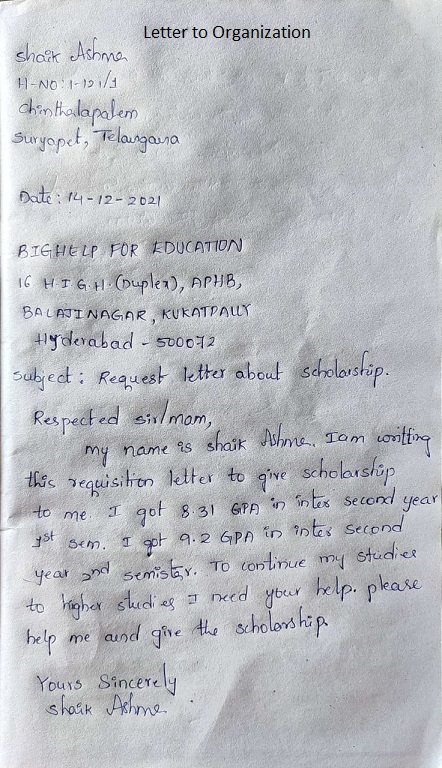 Letter to Organization
Shaik Ashma
H-NO: 1-121/1
Chinthalapalem
Suryapet, Telangana
Date: 14-12-2021
BIGHELP FOR EDUCATION
16 H I G.H.(Duplex), APHB,
BALAJI NAGAR, KUKATPALLY
Hyderabad - 500072
Subject: Request letter about scholarship.
Respected sir/mam,
my name is shaik Ashma. Iam writting
this requisition letter to give scholarship
to me. I got 8.31 GPA in inter second year
1st sem. I got 9.2 GPA in inter second
year 2nd semister. To continue my studies
to higher studies I need your help. please
help me and give the scholarship.
Yours Sincerely
Shaik Ashma